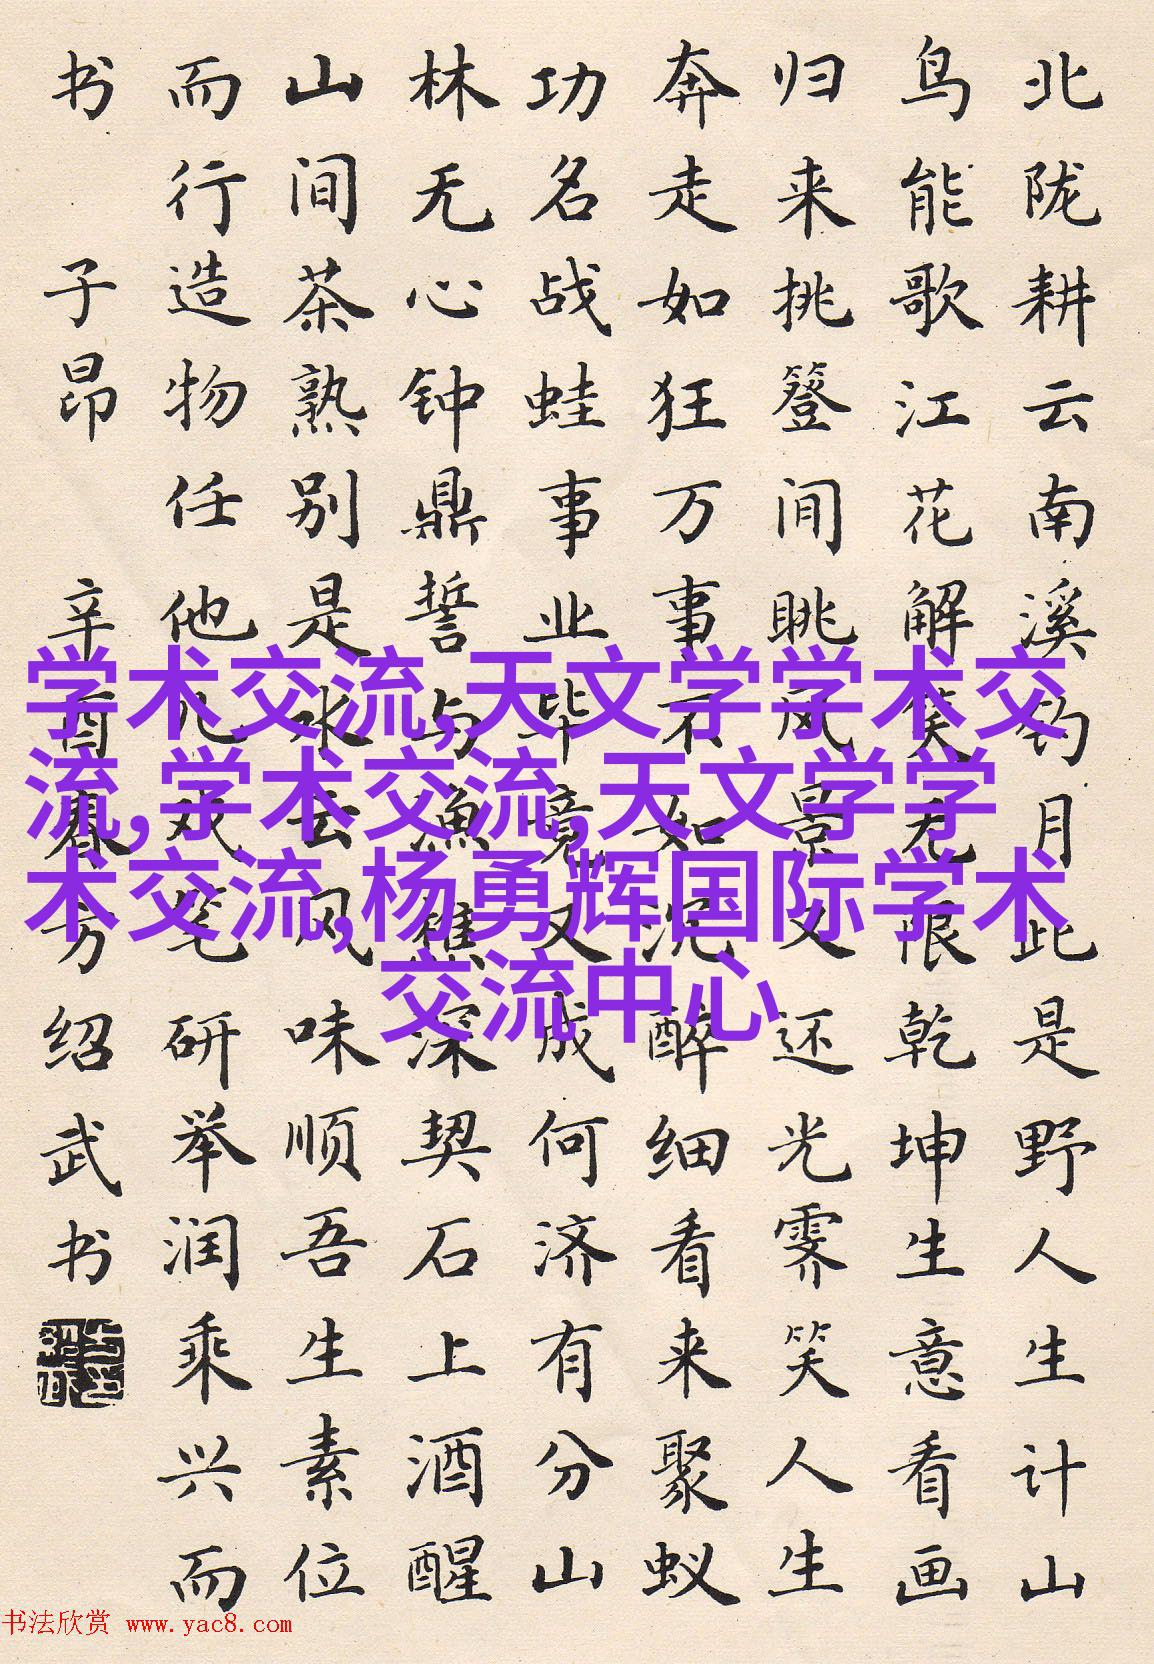 北陇耕云南溪钓月此是野人生计山
鸟能歌江花解笑无限乾坤生意看画
归来挑簦间眺风景又还光霁笑人生
奔走如狂万事不如沉醉细看来聚蚁
功名战蛙事业毕竟又成何济有分山
林无心钟鼎誓与漁樵深契石上酒醒
山间茶熟别是水云风味顺吾生素位
而行造物任他儿戏笔研举润乘兴而
书 子昂 辛酉春方绍武书
学术交流,天文学学术交
流,学术交流,天文学学
术交流,杨勇辉国际学术
交流中心
书法欣赏 www.yac8.com